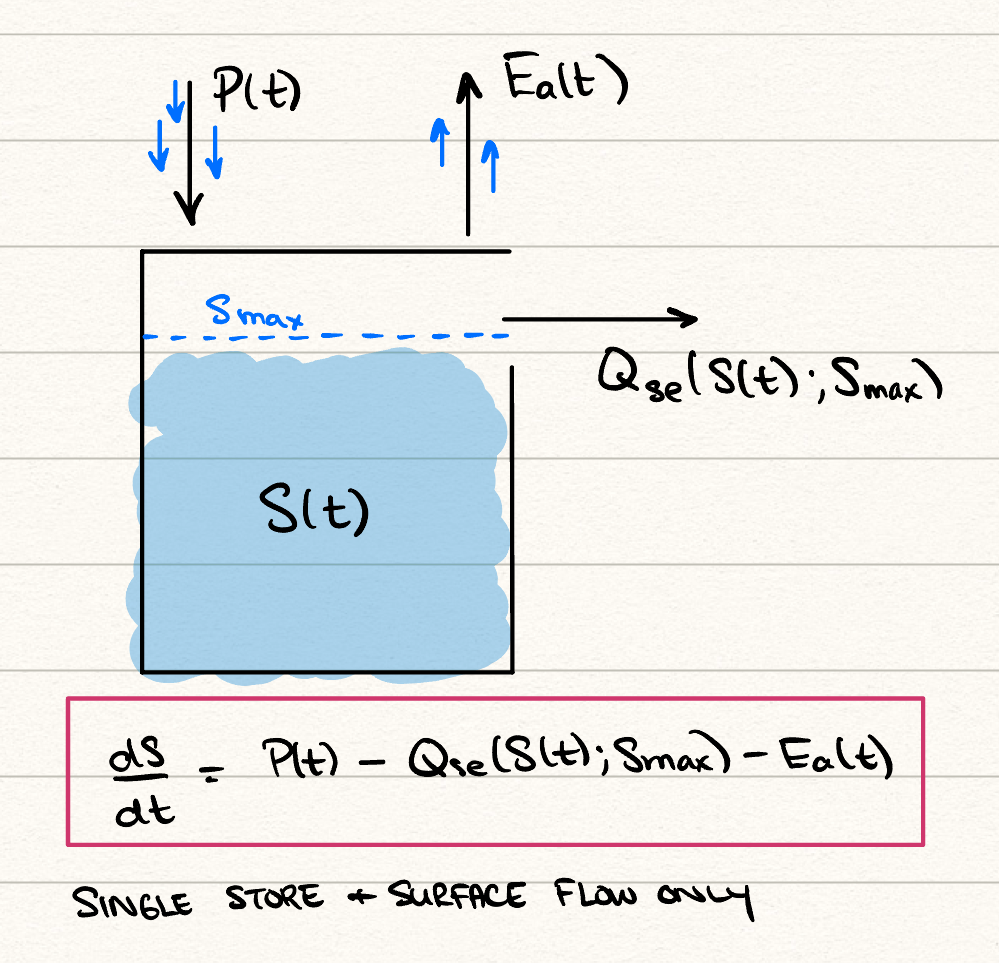 P(t)
Ea(t)
Smax
Qse(S(t);Smax)
S(t)
dS/dt = P(t) - Qse(S(t);Smax) - Ea(t)
SINGLE STORE + SURFACE FLOW ONLY